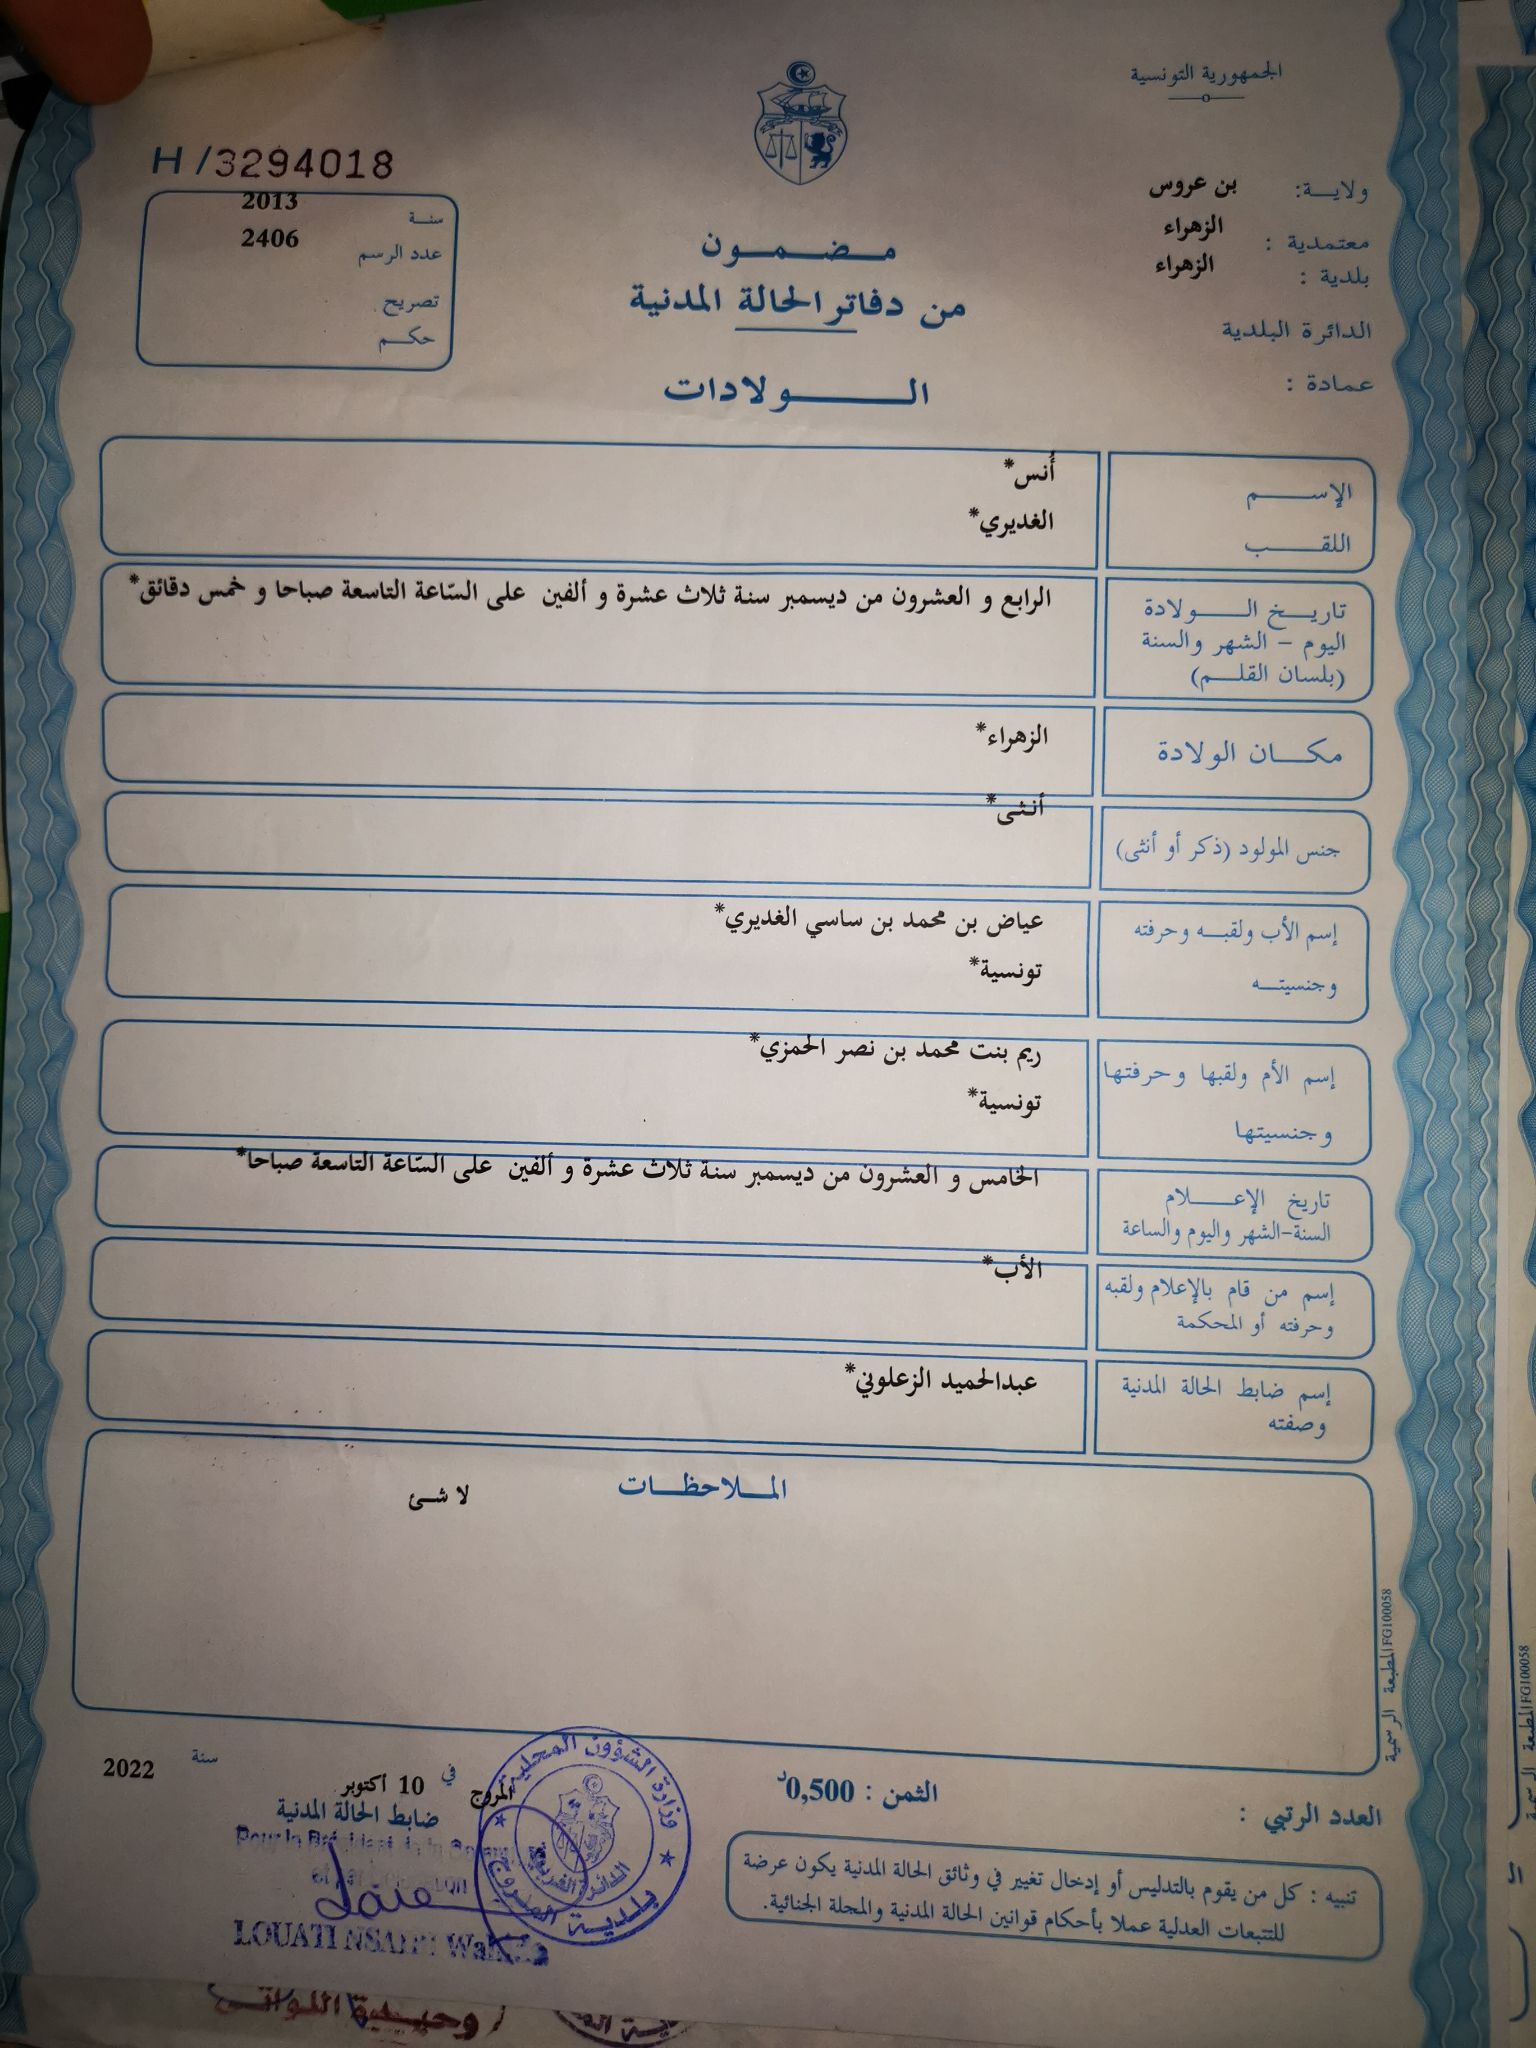 الجمهورية التونسية
ولايـــة: بن عروس
معتمدية : الزهراء
بلدية : الزهراء
الدائرة البلدية
عمادة :
H/3294018
سنـة 2013
عدد الرسم 2406
تصريح
حكـم
مـضـمـون
من دفاتر الحالة المدنية
الـــولادات
الإســـم أُنس*
اللقـــب الغديري*
تاريـخ الـــولادة
اليوم - الشهر والسنة
(بلسان القلـم)
الرابع و العشرون من ديسمبر سنة ثلاث عشرة و ألفين على السّاعة التاسعة صباحا و خمس دقائق*
مكـان الولادة الزهراء*
جنس المولود (ذكر أو أنثى) أنـثـى*
إسم الأب ولقبـه وحرفته عياض بن محمد بن ساسي الغديري*
وجنسيتـه تونسية*
إسم الأم ولقبها وحرفتها ريم بنت محمد بن نصر الحمزي*
وجنسيتها تونسية*
تاريخ الإعـــلام
السنة-الشهر واليوم والساعة
الخامس و العشرون من ديسمبر سنة ثلاث عشرة و ألفين على السّاعة التاسعة صباحا*
إسم من قام بالإعلام ولقبه
وحرفته أو المحكمة
الأب*
إسم ضابط الحالة المدنية
وصفته
عبدالحميد الزعلوني*
المـلاحظـات
لا شـئ
المطبعة الرسمية FG100058
المروج في 10 أكتوبر سنة 2022
ضابط الحالة المدنية
وزارة الشؤون المحلية
بلدية المروج
LOUATI
الثمن : 0,500د
العدد الرتبي :
تنبيه : كل من يقوم بالتدليس أو إدخال تغيير في وثائق الحالة المدنية يكون عرضة
للتتبعات العدلية عملا بأحكام قوانين الحالة المدنية والمجلة الجنائية.
وحيـدة اللواتـي
المطبعة الرسمية FG100058